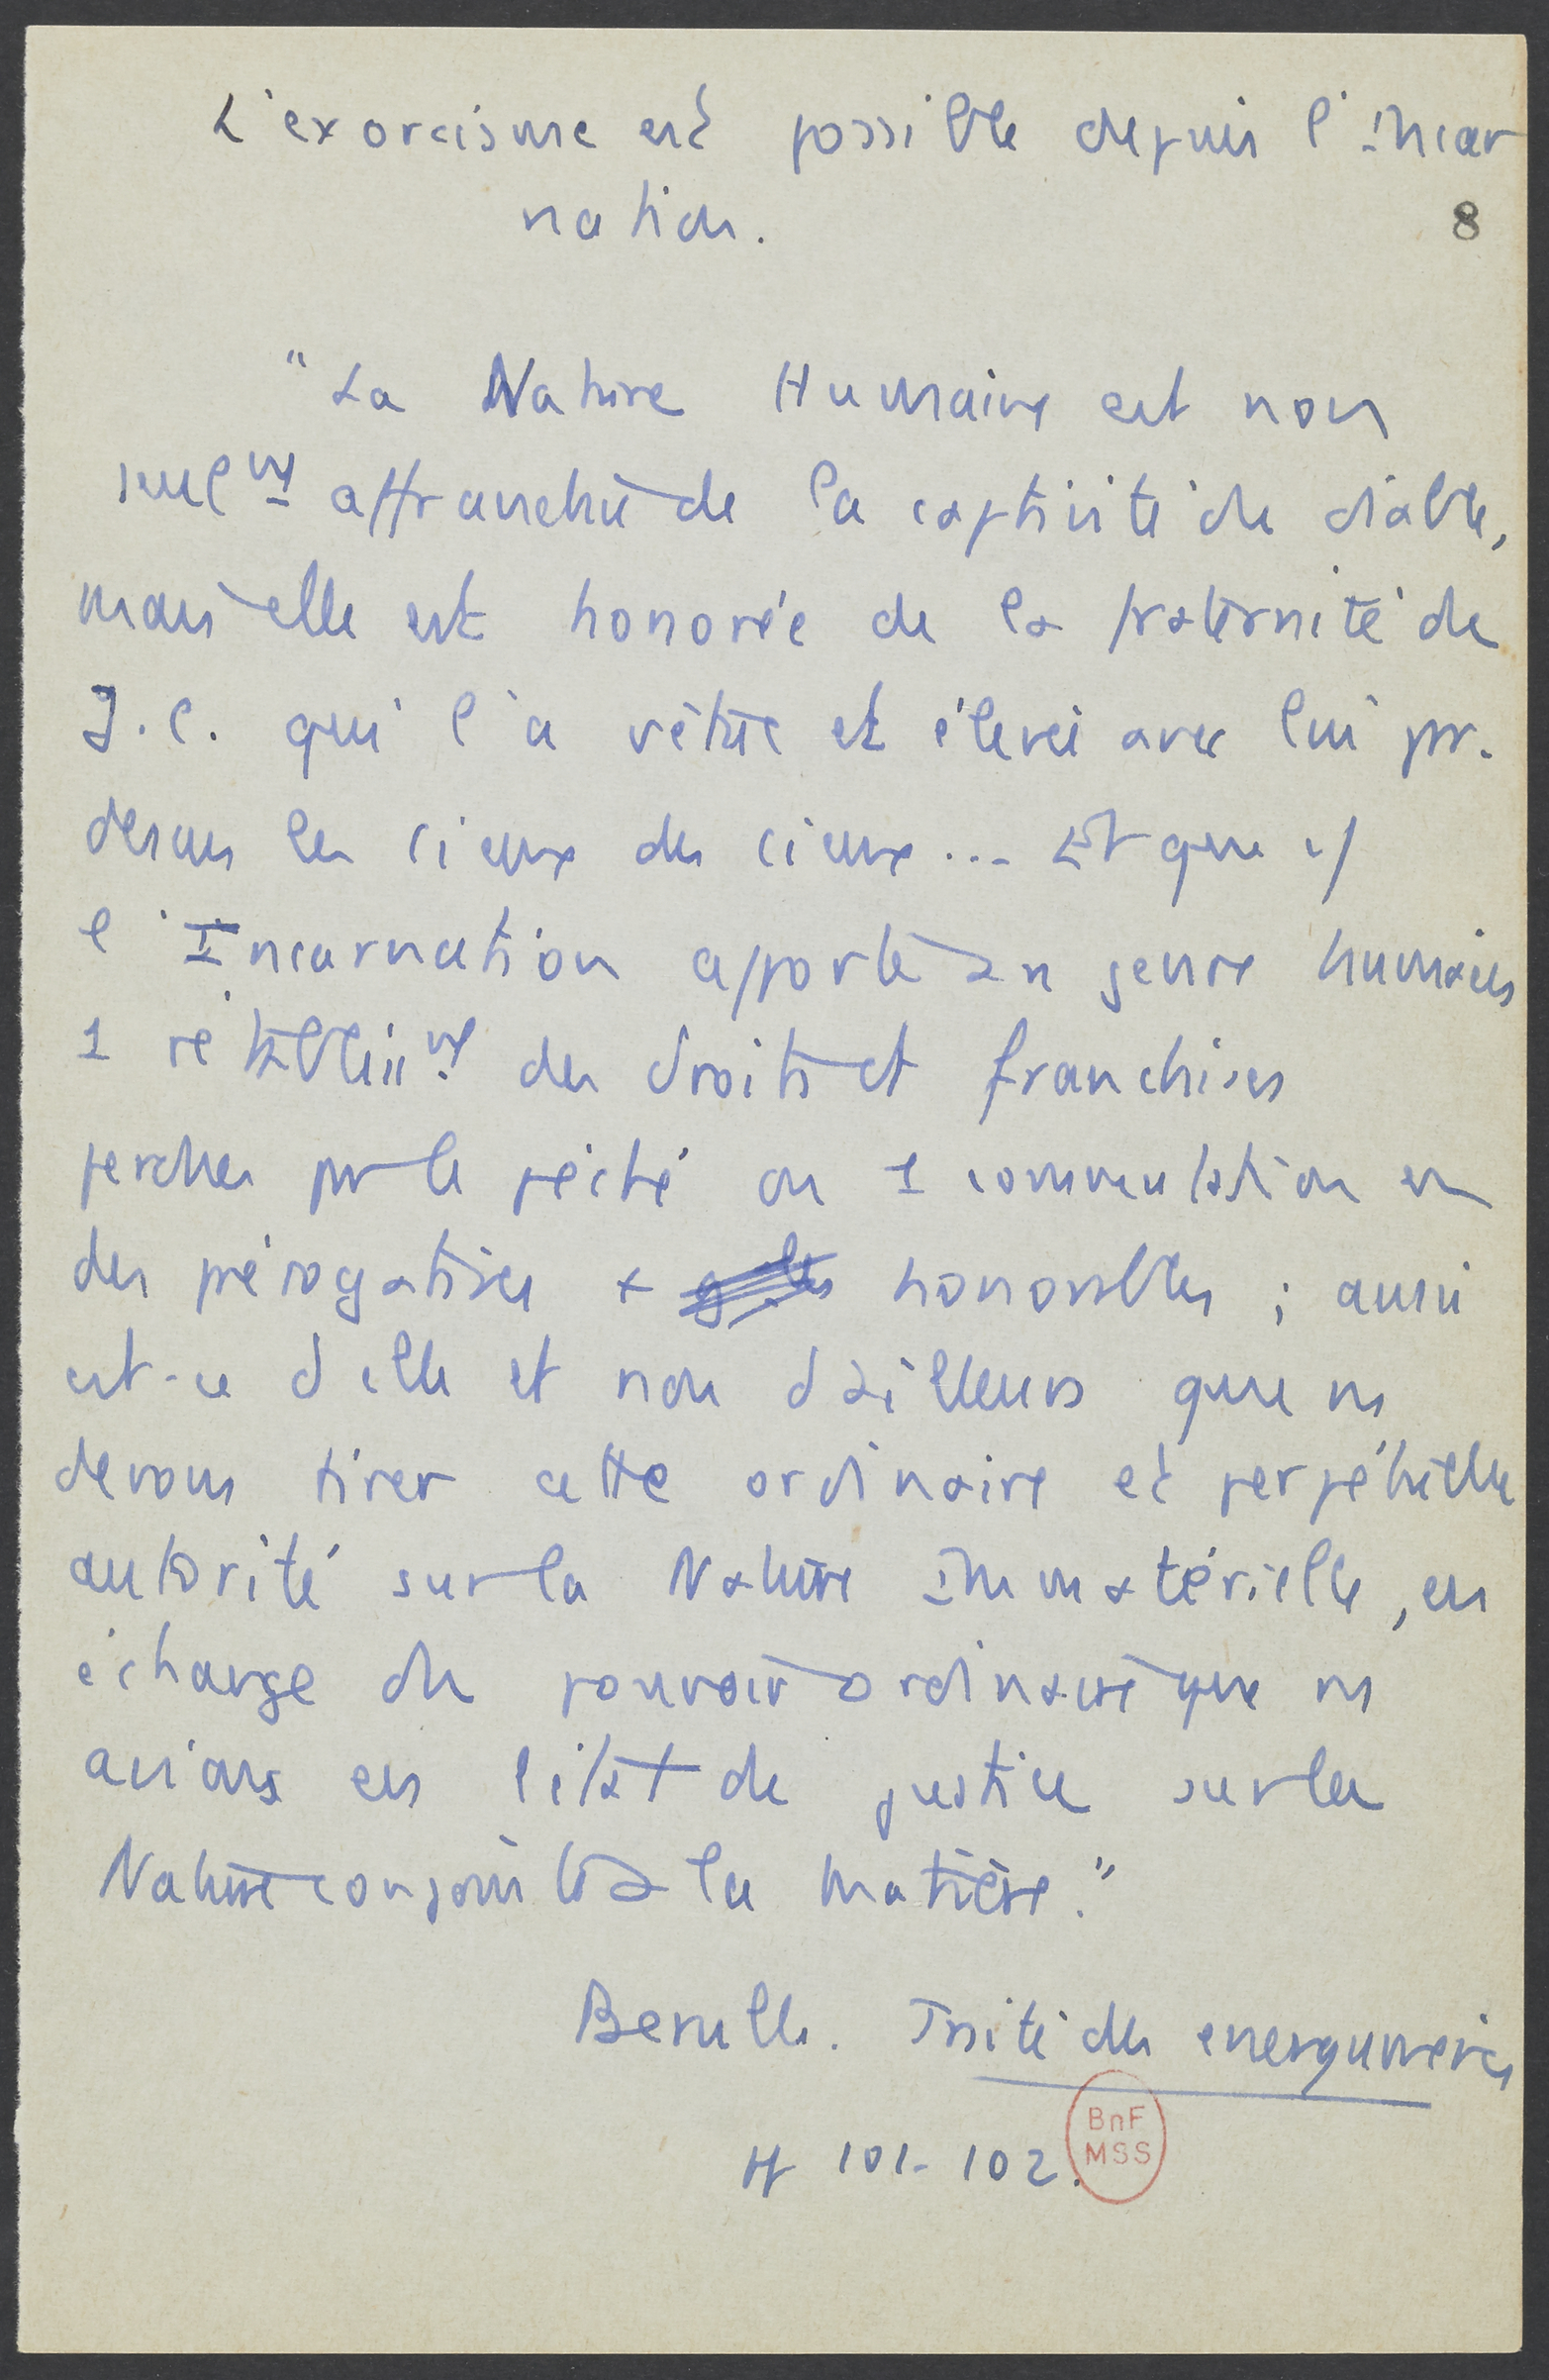 L'exorcisme est possible depuis l'Incar
nation.
8
"La Nature Humaine est non
seulmt affranchie de la captivité du diable,
mais elle est honorée de la fraternité de
J.C. qui l'a vêtue et élevée avec lui par
dessus les cieux des cieux... Et que
l'Incarnation apporte au genre humain
1 rétablissmt des droits et franchises
perdues par le péché ou 1 commutation en
des prérogatives + honorables ; aussi
est-ce d'elle et non d'ailleurs que ns
devons tirer cette ordinaire et perpétuelle
autorité sur la Nature Immatérielle, en
échange du pouvoir ordinaire que ns
avions en l'état de justice sur la
Nature conjointe à la matière."
Berulle. Traité des energumènes
101-102.
BnF
MSS